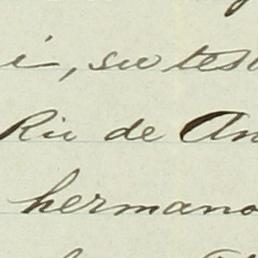 i, su tes
Rio de An
hermano